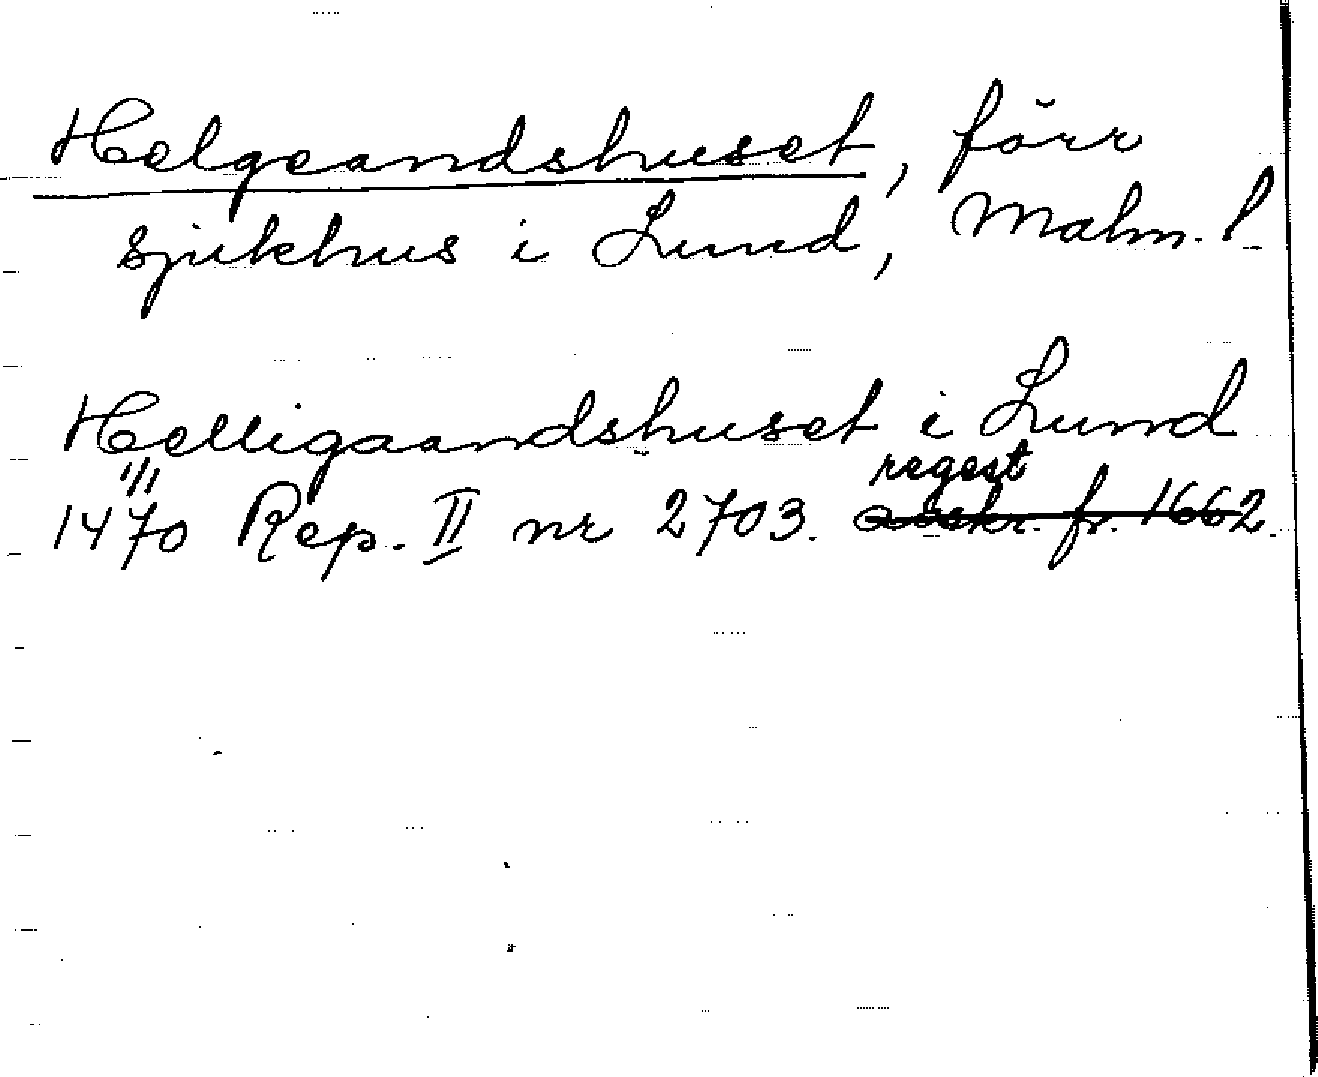 Helgeandshuset, förr
sjukhus i Lund, Malm. l
Helligaandshuset i Lund
1/1
regest
1470 Rep. II nr 2703. avskr. fr. 1662.